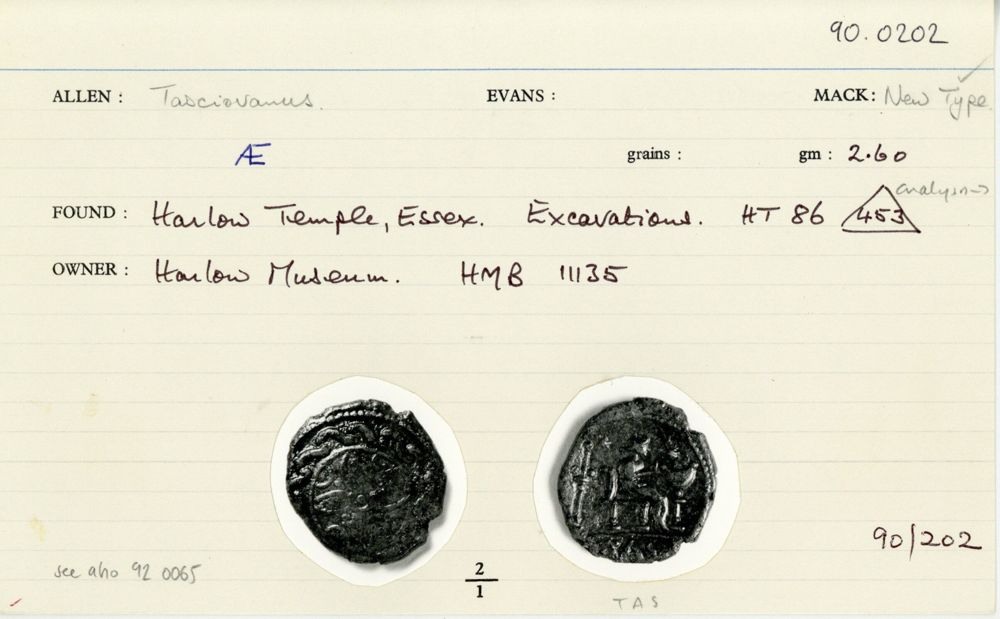 90.0202
ALLEN : Tasciovanus. EVANS : MACK: New Type
Æ grains : gm : 2.60
analysis
FOUND : Harlow Temple, Essex. Excavations. HT 86 453
OWNER : Harlow Museum. HMB 11135
90/202
see also 92 0065
2
1
TAS